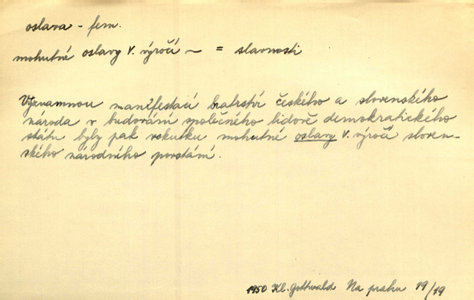 oslava - fem.
mohutné oslavy V. výročí ~ = slavnosti
Významnou manifestací bratrství českého a slovenského
národa v budování společného lidově demokratického
státu byly pak vskutku mohutné oslavy V. výročí sloven-
ského národního povstání.
1950 Kl. Gottwald Na prahu 19/19